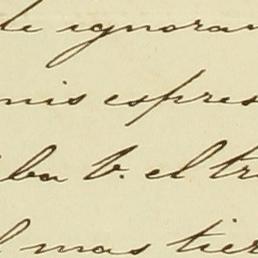 de ignoran
mis espres
iba V. el tra
l mas tier